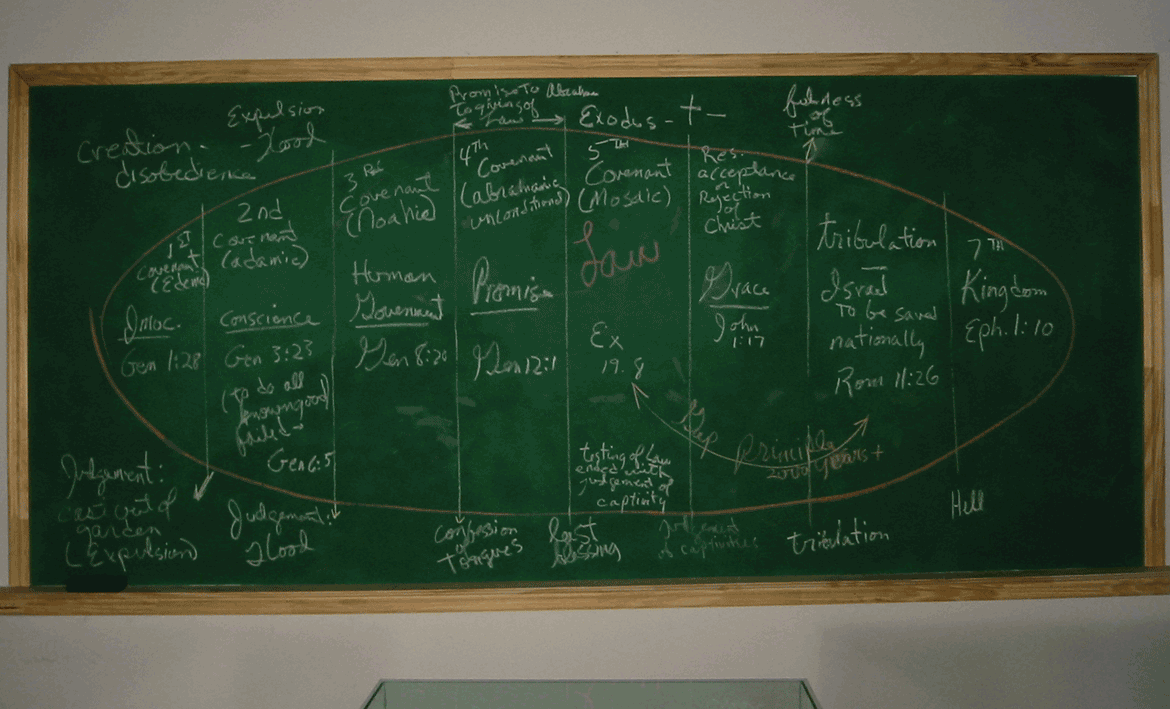 Creation -
disobedience
Expulsion
- Flood
Promise to Abraham
to giving of
Law
Exodus - † -
fulness
of
time
1st
Covenant
(Edenic)
Innoc.
Gen 1:28
2nd
Covenant
(adamic)
Conscience
Gen 3:23
(to do all
known good)
failed →
Gen 6:5
3rd
Covenant
(Noahic)
Human
Government
Gen 8:20
4TH
Covenant
(abrahamic
unconditional)
Promise
Gen 12:1
5TH
Covenant
(Mosaic)
Law
Ex
19. 8
testing of law
ended with
judgement of
captivity
Res-
acceptance
or
Rejection
of
Christ
Grace
John
1:17
Gap Principle
2000 years +
tribulation
Israel
To be saved
nationally
Rom 11:26
7TH
Kingdom
Eph. 1:10
Judgement:
cast out of
garden
(Expulsion)
Judgement:
Flood
confusion
of
tongues
lost
blessing
judgement
of captivities
tribulation
Hell